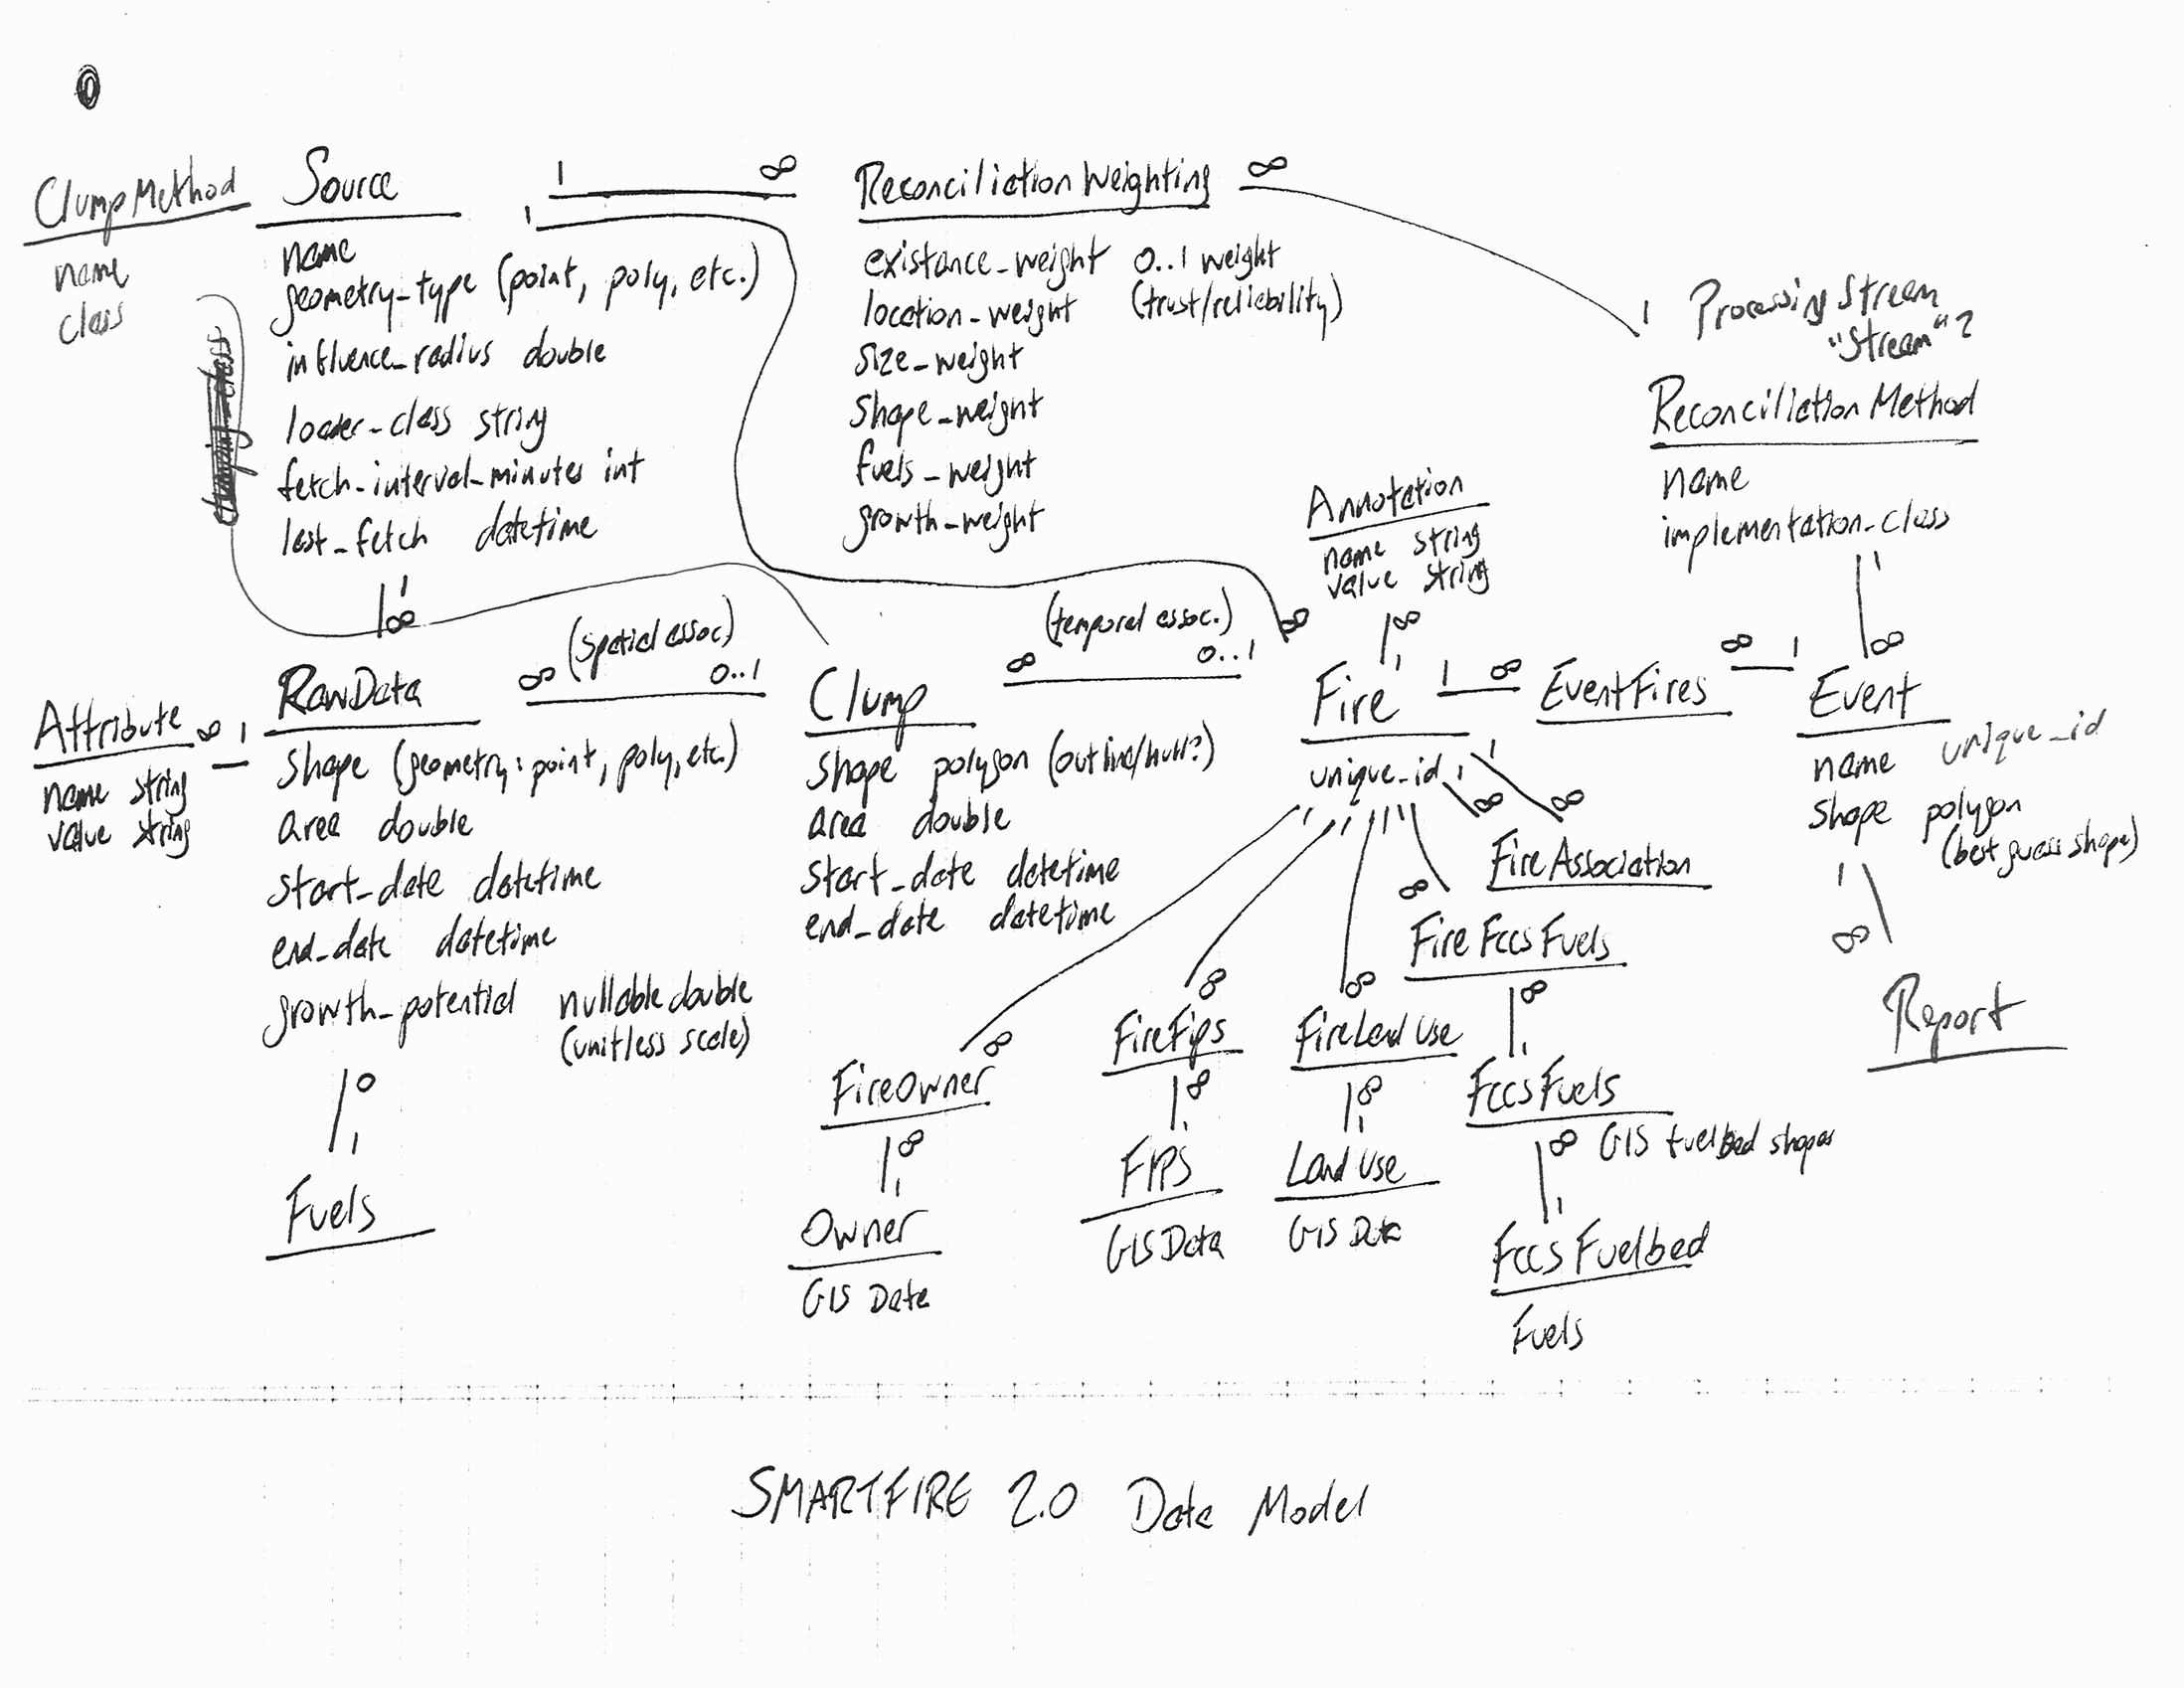 0
ClumpMethod
name
class
Source
name
geometry-type (point, poly, etc.)
influence_radius double
loader-class string
fetch-interval-minutes int
last_fetch datetime
1 ∞
1
ReconciliationWeighting ∞
existance_weight 0..1 weight
location-weight (trust/reliability)
size-weight
shape-weight
fuels-weight
growth-weight
1 Processing Stream
"Stream"?
ReconciliationMethod
name
implementation-class
1
∞
Annotation
name string
value string
∞
1
1
∞
Attribute ∞ 1
name string
value string
RawData
shape (geometry: point, poly, etc.)
area double
start_date datetime
end_date datetime
growth_potential nullable double
(unitless scale)
0
1
Fuels
(spatial assoc.)
∞ 0..1
Clump
shape polygon (outline/hull?)
area double
start_date datetime
end_date datetime
(temporal assoc.)
∞ 0..1
∞
Fire 1 ∞ EventFires ∞ 1 Event
unique_id
name unique_id
shape polygon
(best guess shape)
1
∞
Report
1 ∞
1 ∞
FireAssociation
∞
Fire FccsFuels
∞
1
FccsFuels
GIS fuelbed shapes
∞
1
Fccs Fuelbed
Fuels
∞
FireOwner
∞
1
Owner
GIS Data
∞
FireFips
∞
1
FIPS
GIS Data
∞
FireLand Use
∞
1
Land Use
GIS Data
SMARTFIRE 2.0 Data Model